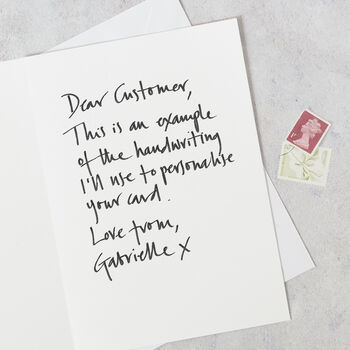 Dear Customer,
This is an example
of the handwriting
I'll use to personalise
your card.
Love from,
Gabrielle X